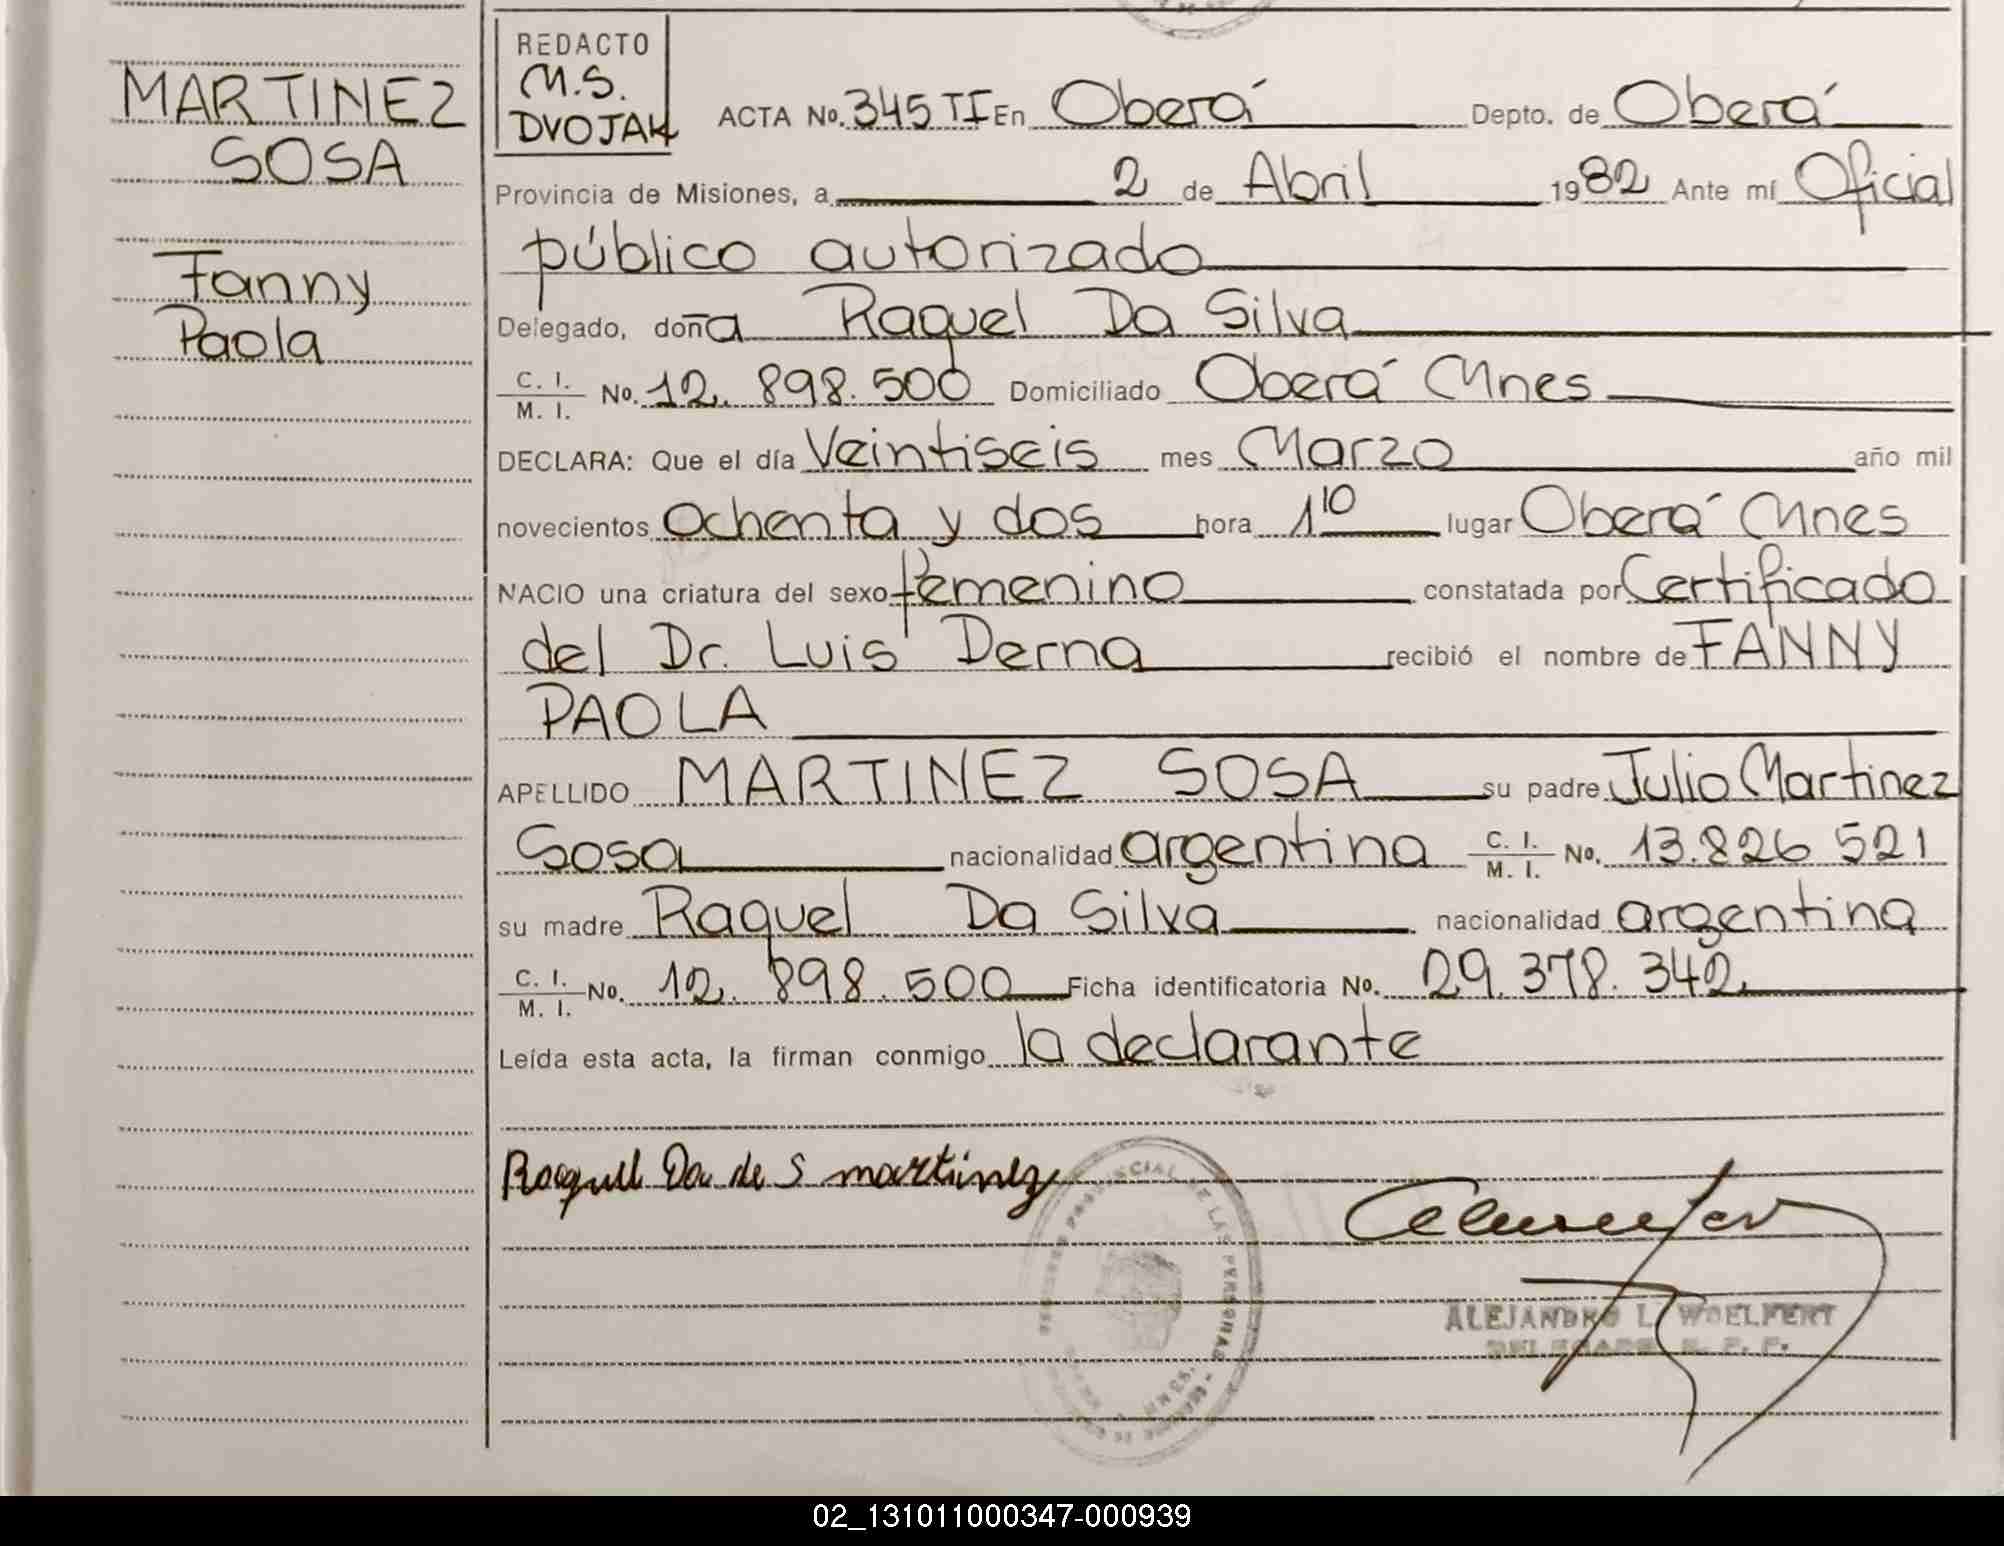 MARTINEZ
SOSA
Fanny
Paola
REDACTO
M.S.
DVOJAK
ACTA No. 345 TI En Oberá Depto. de Oberá
Provincia de Misiones, a 2 de Abril 1982 Ante mí Oficial
público autorizado
Delegado, doña Raquel Da Silva
C. I. / M. I. No. 12.898.500 Domiciliado Oberá Mnes
DECLARA: Que el día Veintiseis mes Marzo año mil
novecientos ochenta y dos hora 1 10 lugar Oberá Mnes
NACIO una criatura del sexo femenino constatada por Certificado
del Dr. Luis Derna recibió el nombre de FANNY
PAOLA
APELLIDO MARTINEZ SOSA su padre Julio Martinez
Sosa nacionalidad argentina C. I. / M. I. No. 13.826 521
su madre Raquel Da Silva nacionalidad argentina
C. I. / M. I. No. 12.898.500 Ficha identificatoria No. 29.378.342
Leída esta acta, la firman conmigo la declarante
Raquel Da de S martinez
PROVINCIAL DE LAS PERSONAS
ALEJANDRO L. WOELFERT
DELEGADO R. P. P.
02_131011000347-000939